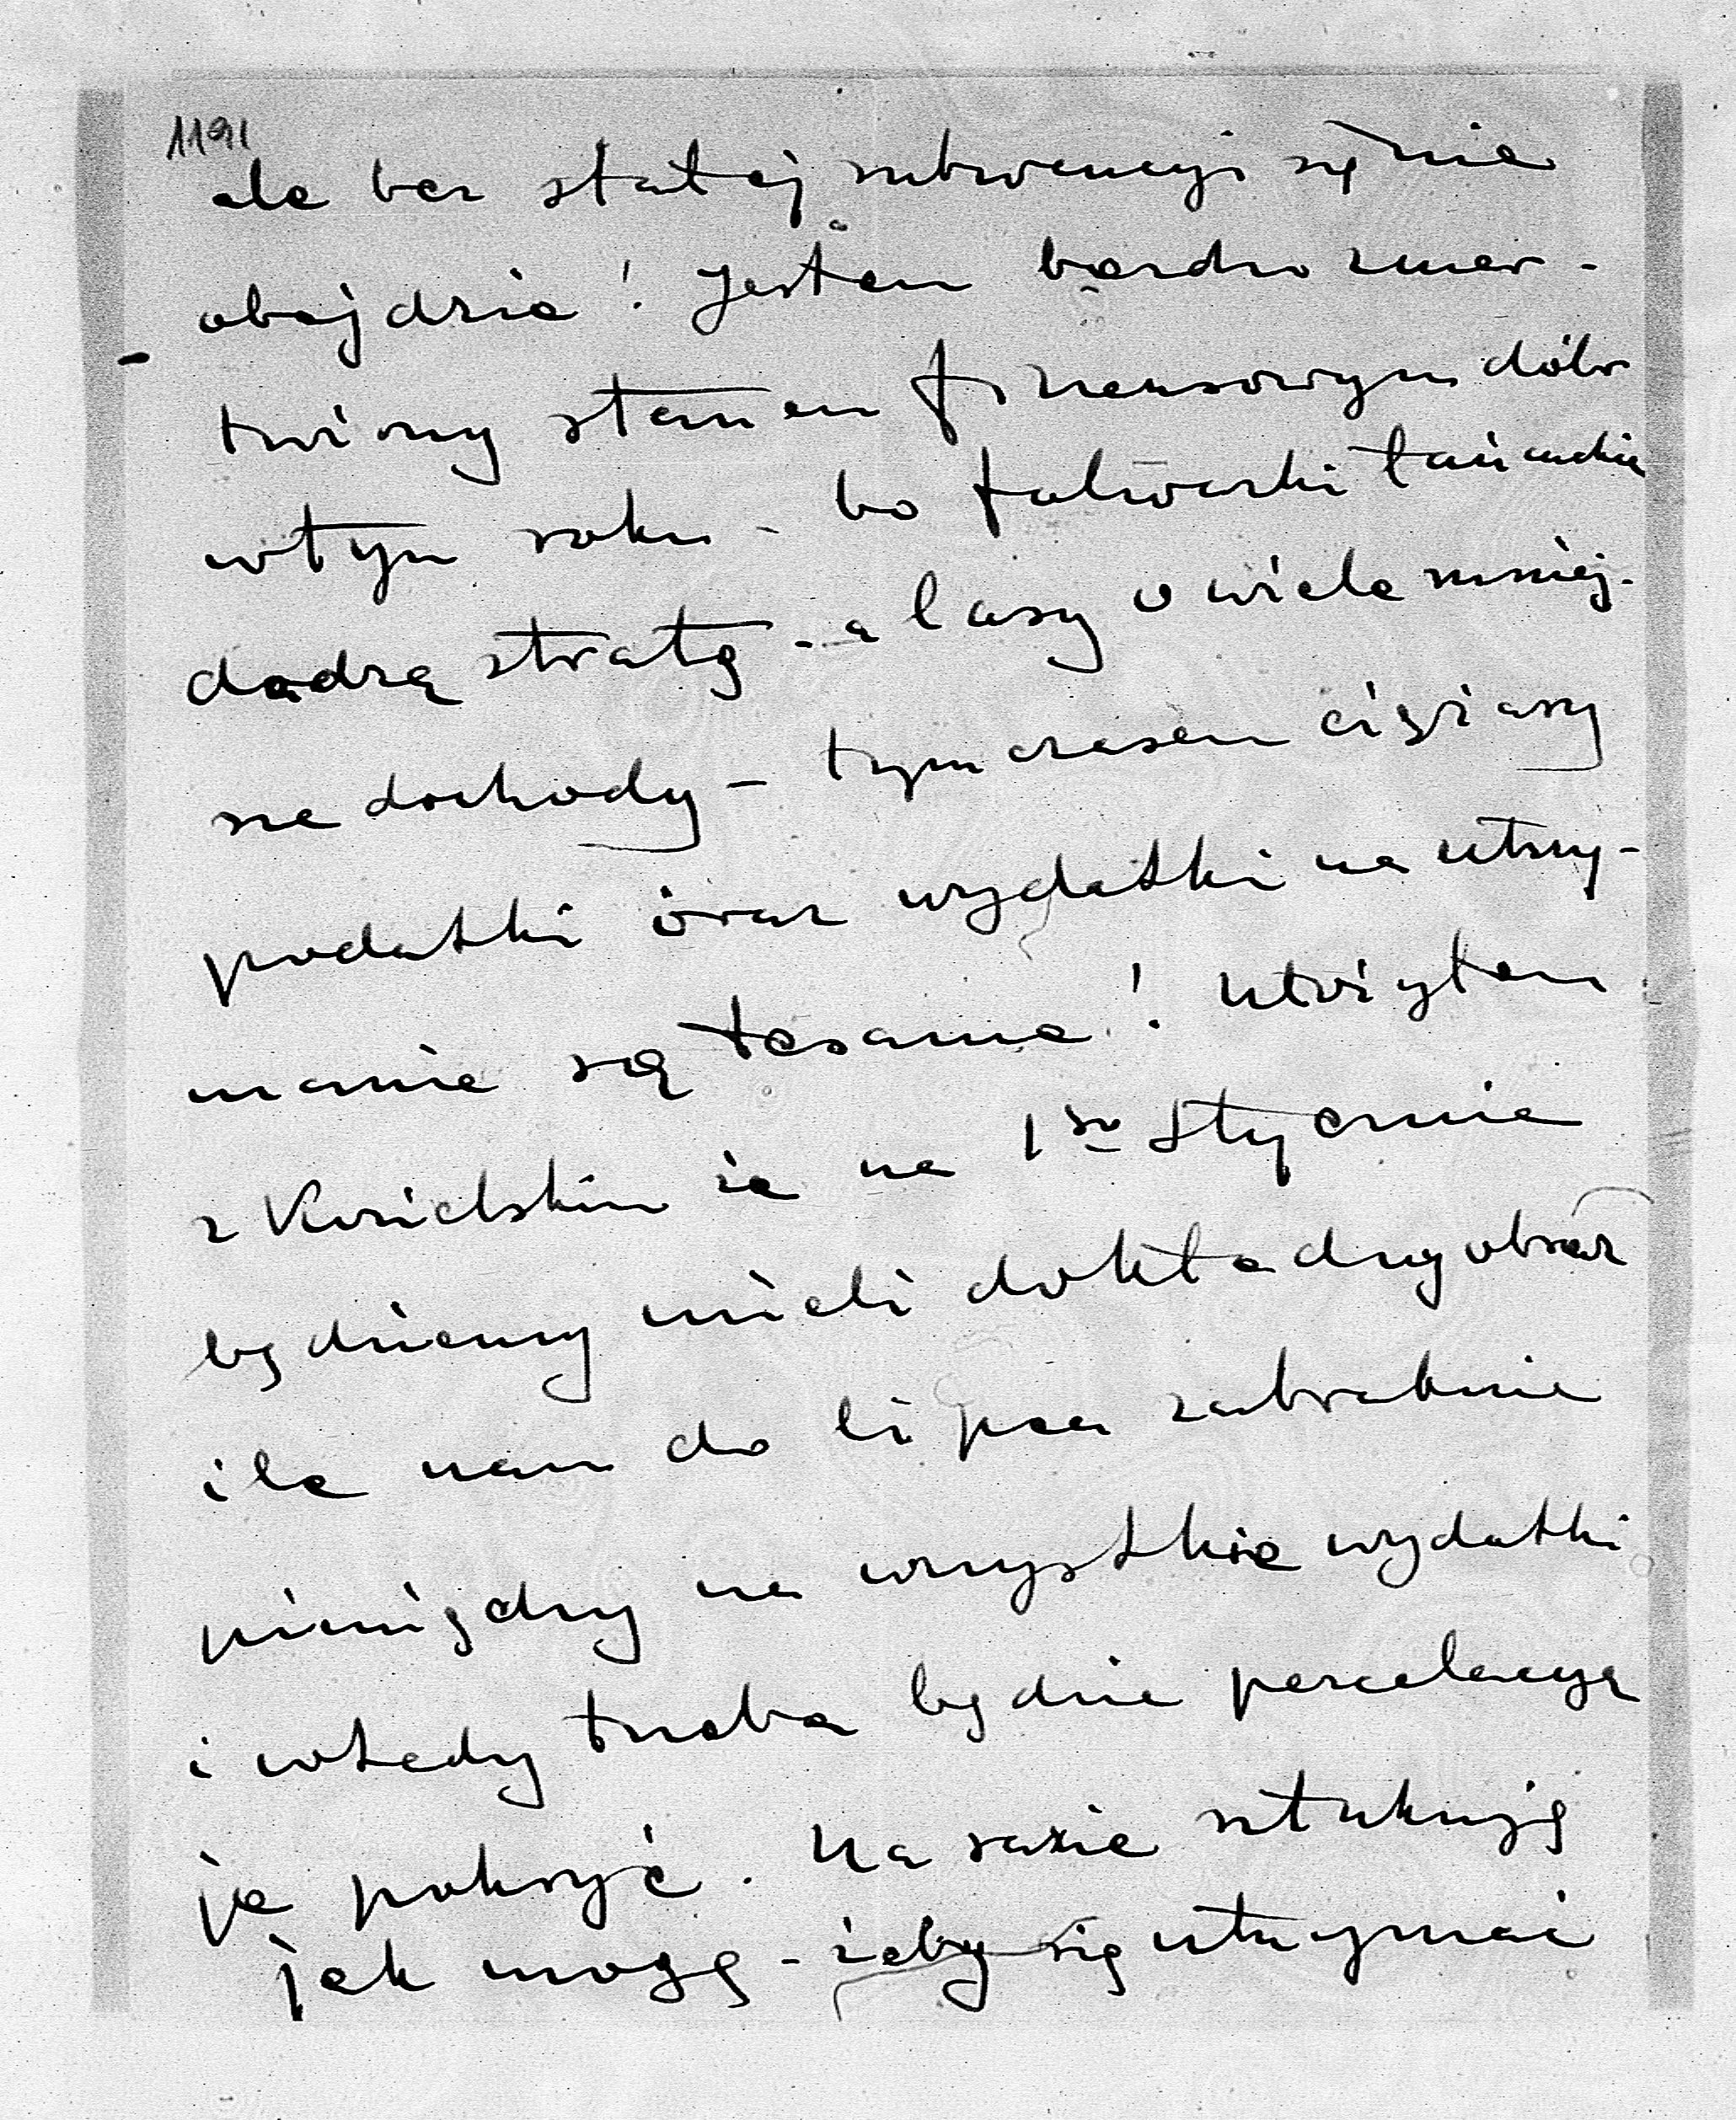 1191
ale bez stałej subwencyi się nie
obejdzie! Jestem bardzo zmar-
twiony stanem finansowym dóbr
w tym roku - bo folwarki łańcuckie
dadzą stratę - a lasy o wiele mniej-
sze dochody - tymczasem ciężiary
podatki oraz wydatki na utrzy-
manie są tesame! Ułożyłem
z Kozielskim że na 1go Stycznia
będziemy mieli dokładny obraz
ile nam do lipca zabraknie
pieniędzy na wszystkie wydatki
i wtedy trzeba będzie parcelacyą
je pokryć. Na razie sztukuję
jak mogę - żeby się utrzymać